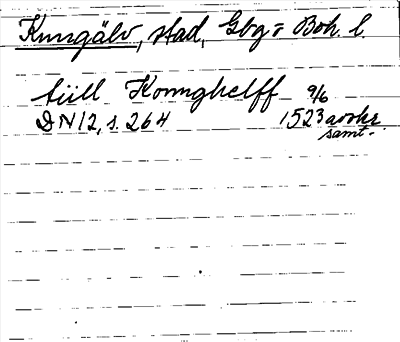 Kungälv, stad, Gbg = Boh. l.
tüll Konnghelff 9/6
DN12, s. 264 1523 avskr.
samt.